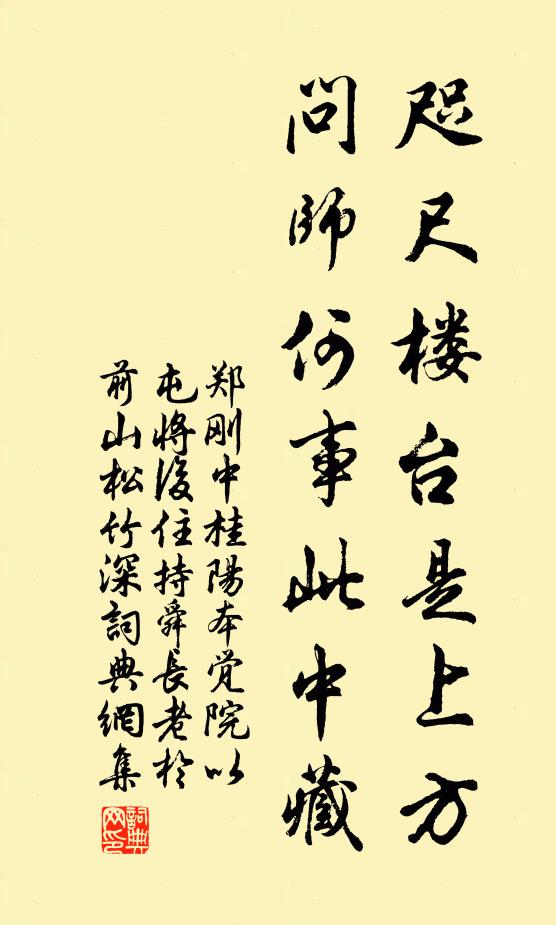 咫尺楼台是上方
问师何事此中藏
郑刚中桂陽本觉院以
屯將後住持舜長老於
前山松竹深詞典網集
詞典网印